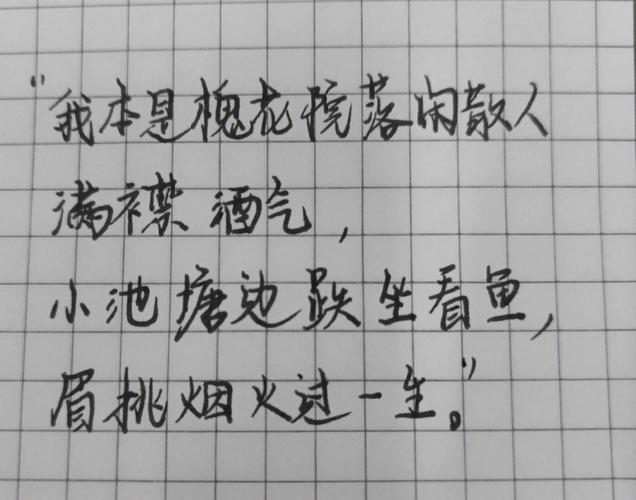 “我本是槐花院落闲散人
满襟酒气，
小池塘边跌坐看鱼，
眉挑烟火过一生。”